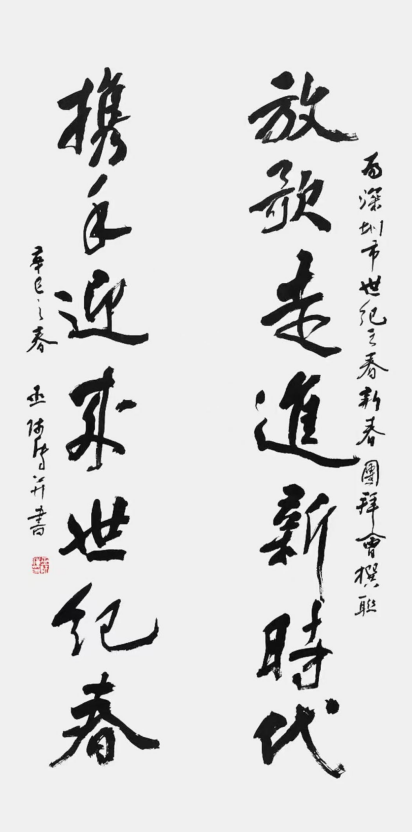 為深圳市世紀之春新春團拜會撰聯
放歌走進新時代
携手迎來世紀春
辛巳之春 并書